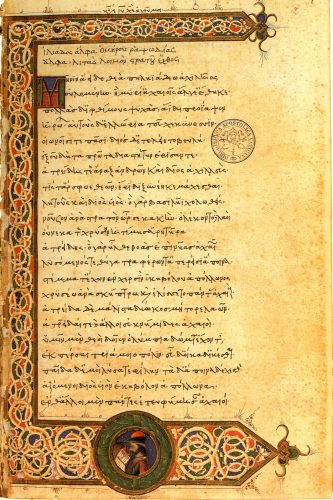 Ἰλιάδος ἄλφα Ὁμήρου ῥαψωδίας
ἄλφα λιτὰς λοιμὸν στρατοῦ ἔχθος
Μῆνιν ἄειδε θεὰ Πηληϊάδεω Ἀχιλῆος
οὐλομένην ἣ μυρί' Ἀχαιοῖς ἄλγε' ἔθηκε
πολλὰς δ' ἰφθίμους ψυχὰς ἄϊδι προΐαψεν
ἡρώων· αὐτοὺς δὲ ἑλώρια τεῦχε κύνεσσιν
οἰωνοῖσί τε πᾶσι· Διὸς δ' ἐτελείετο βουλή
ἐξ οὗ δὴ τὰ πρῶτα διαστήτην ἐρίσαντε
Ἀτρείδης τε ἄναξ ἀνδρῶν καὶ δῖος Ἀχιλλεύς
τίς τάρ σφωε θεῶν ἔριδι ξυνέηκε μάχεσθαι
Λητοῦς καὶ Διὸς υἱός· ὁ γὰρ βασιλῆϊ χολωθείς
νοῦσον ἀνὰ στρατὸν ὦρσε κακὴν ὀλέκοντο δὲ λαοί
οὕνεκα τὸν Χρύσην ἠτίμησ' ἀρητῆρα
Ἀτρείδης· ὁ γὰρ ἦλθε θοὰς ἐπὶ νῆας Ἀχαιῶν
λυσόμενός τε θύγατρα φέρων τ' ἀπερείσι' ἄποινα
στέμμα τ' ἔχων ἐν χερσὶν ἑκηβόλου Ἀπόλλωνος
χρυσέῳ ἀνὰ σκήπτρῳ καὶ ἐλίσσετο πάντας Ἀχαιούς
Ἀτρείδα δὲ μάλιστα δύω κοσμήτορε λαῶν
Ἀτρεῖδαί τε καὶ ἄλλοι ἐϋκνήμιδες Ἀχαιοί
ὑμῖν μὲν θεοὶ δοῖεν Ὀλύμπια δώματ' ἔχοντες
ἐκπέρσαι Πριάμοιο πόλιν εὖ δ' οἴκαδ' ἱκέσθαι
παῖδα δέ μοι λύσαιτε φίλην τὰ δ' ἄποινα δέχεσθε
ἁζόμενοι Διὸς υἱὸν ἑκηβόλον Ἀπόλλωνα
ἔνθ' ἄλλοι μὲν πάντες ἐπευφήμησαν Ἀχαιοί